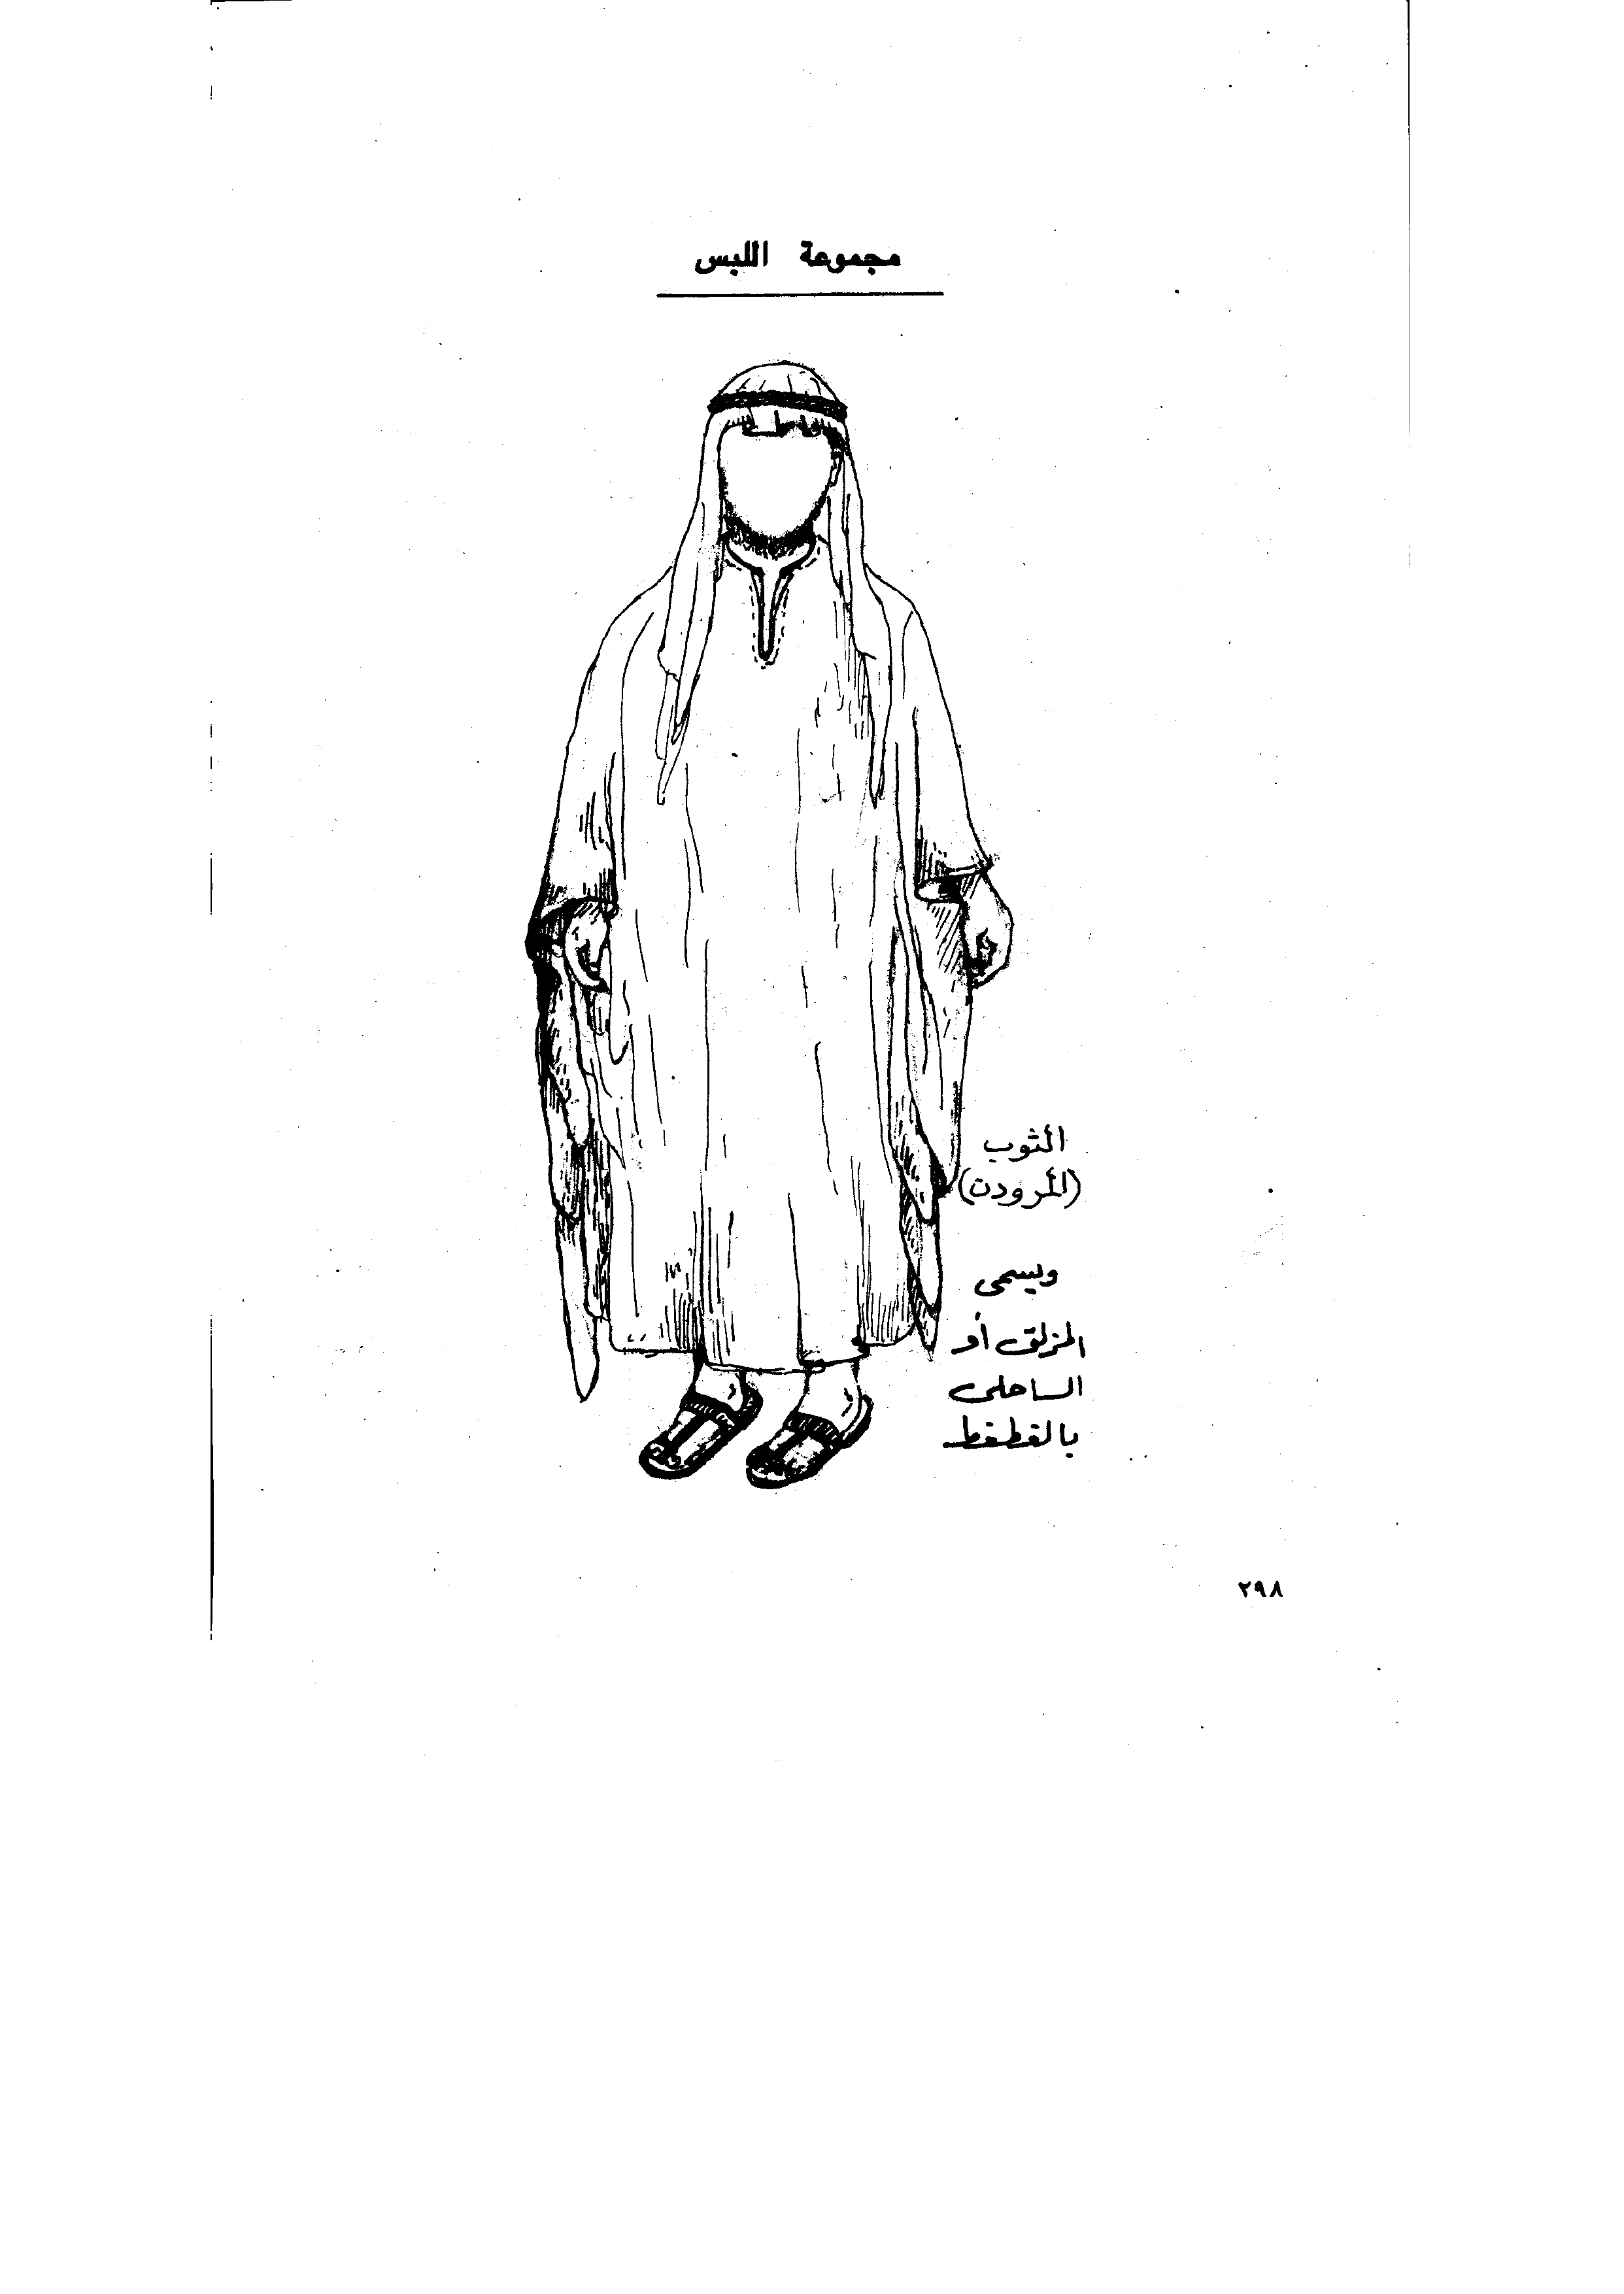 مجموعة اللبس
الثوب
(المرودن)
ويسمى
المزلق أو
الساحلى
بالقطقط
٢٩٨